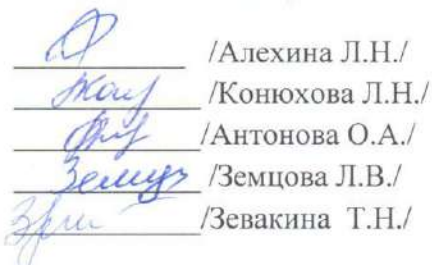 /Алехина Л.Н./
/Конюхова Л.Н./
/Антонова О.А./
/Земцова Л.В./
/Зевакина Т.Н./